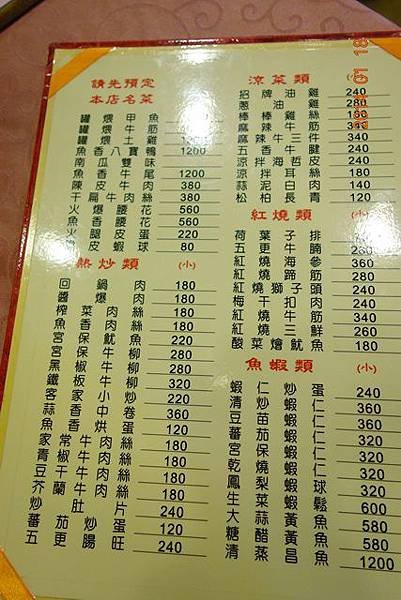 請先預定
本店名菜
罐煨甲魚
罐煨牛筋
罐煨土雞
魚香八寶鴨 1200
南瓜雙味
魚香牛尾 1200
陳皮牛肉 380
干扁牛肉絲 380
火爆腰花 560
魚香腰花 560
火腿皮蛋 220
皮蝦球 80
熱炒類 (小)
回鍋肉 180
醬爆肉絲 180
榨菜肉絲 180
魚香肉絲 180
宮保魷魚 220
宮保牛柳 280
黑椒牛柳 280
鐵板牛柳 320
客家小炒 220
蒜香中卷 360
魚香烘蛋 120
家常牛肉絲 180
青椒牛肉絲 180
豆干牛肉絲 180
芥蘭牛肉絲 180
炒肚片 240
蕃茄炒蛋 120
五更腸旺 240
涼菜類 (小)
招牌油雞 240
蔥油雞 280
棒棒雞絲 240
麻辣牛筋 340
麻辣牛三件 340
五香牛腱 240
涼拌海哲皮 240
涼拌耳絲 180
蒜泥白肉 140
松柏長青 120
紅燒類 (小)
荷葉子排
五更牛腩 260
紅燒海參 360
紅燒蹄筋 280
紅燒獅子頭 240
梅干扣肉 240
紅燒三鮮 260
酸菜燴魷魚 180
魚蝦類 (小)
蝦仁炒蛋 240
清炒蝦仁 360
豆苗蝦仁 360
蕃茄蝦仁 320
宮保蝦仁 320
乾燒蝦仁 320
鳳梨蝦球 320
生菜蝦鬆 600
大蒜黃魚 580
糖醋黃魚 580
清蒸昌魚 1200